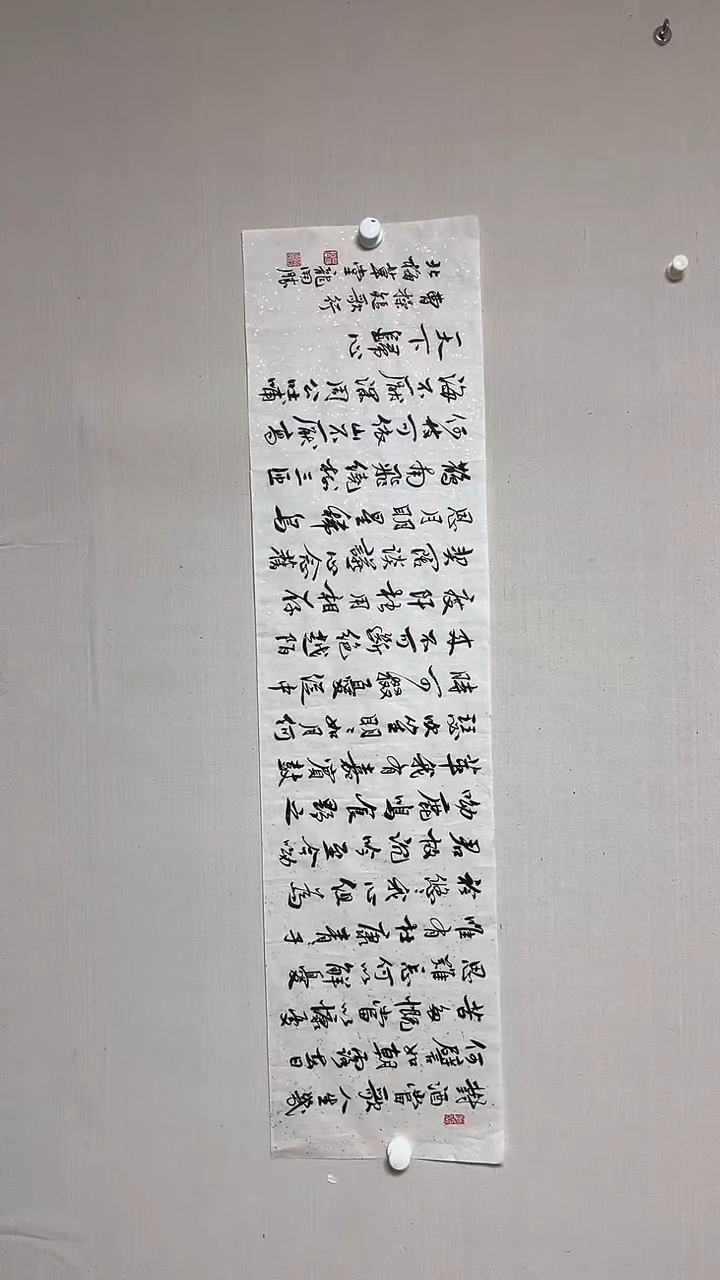 對酒當歌人生幾
何譬如朝露去日
苦多慨當以慷憂
思難忘何以解憂
唯有杜康青子
衿悠我心但為
君故沉吟至今呦
呦鹿鳴食野之
苹我有嘉賓鼓
瑟吹笙明〻如月何
時可掇憂從中
來不可斷絕越陌
度阡枉用相存
契闊談讌心念舊
恩月明星稀烏
鵲南飛繞樹三匝
何枝可依山不厭高
海不厭深周公吐哺
天下歸心
曹操短歌行
北草堂龍